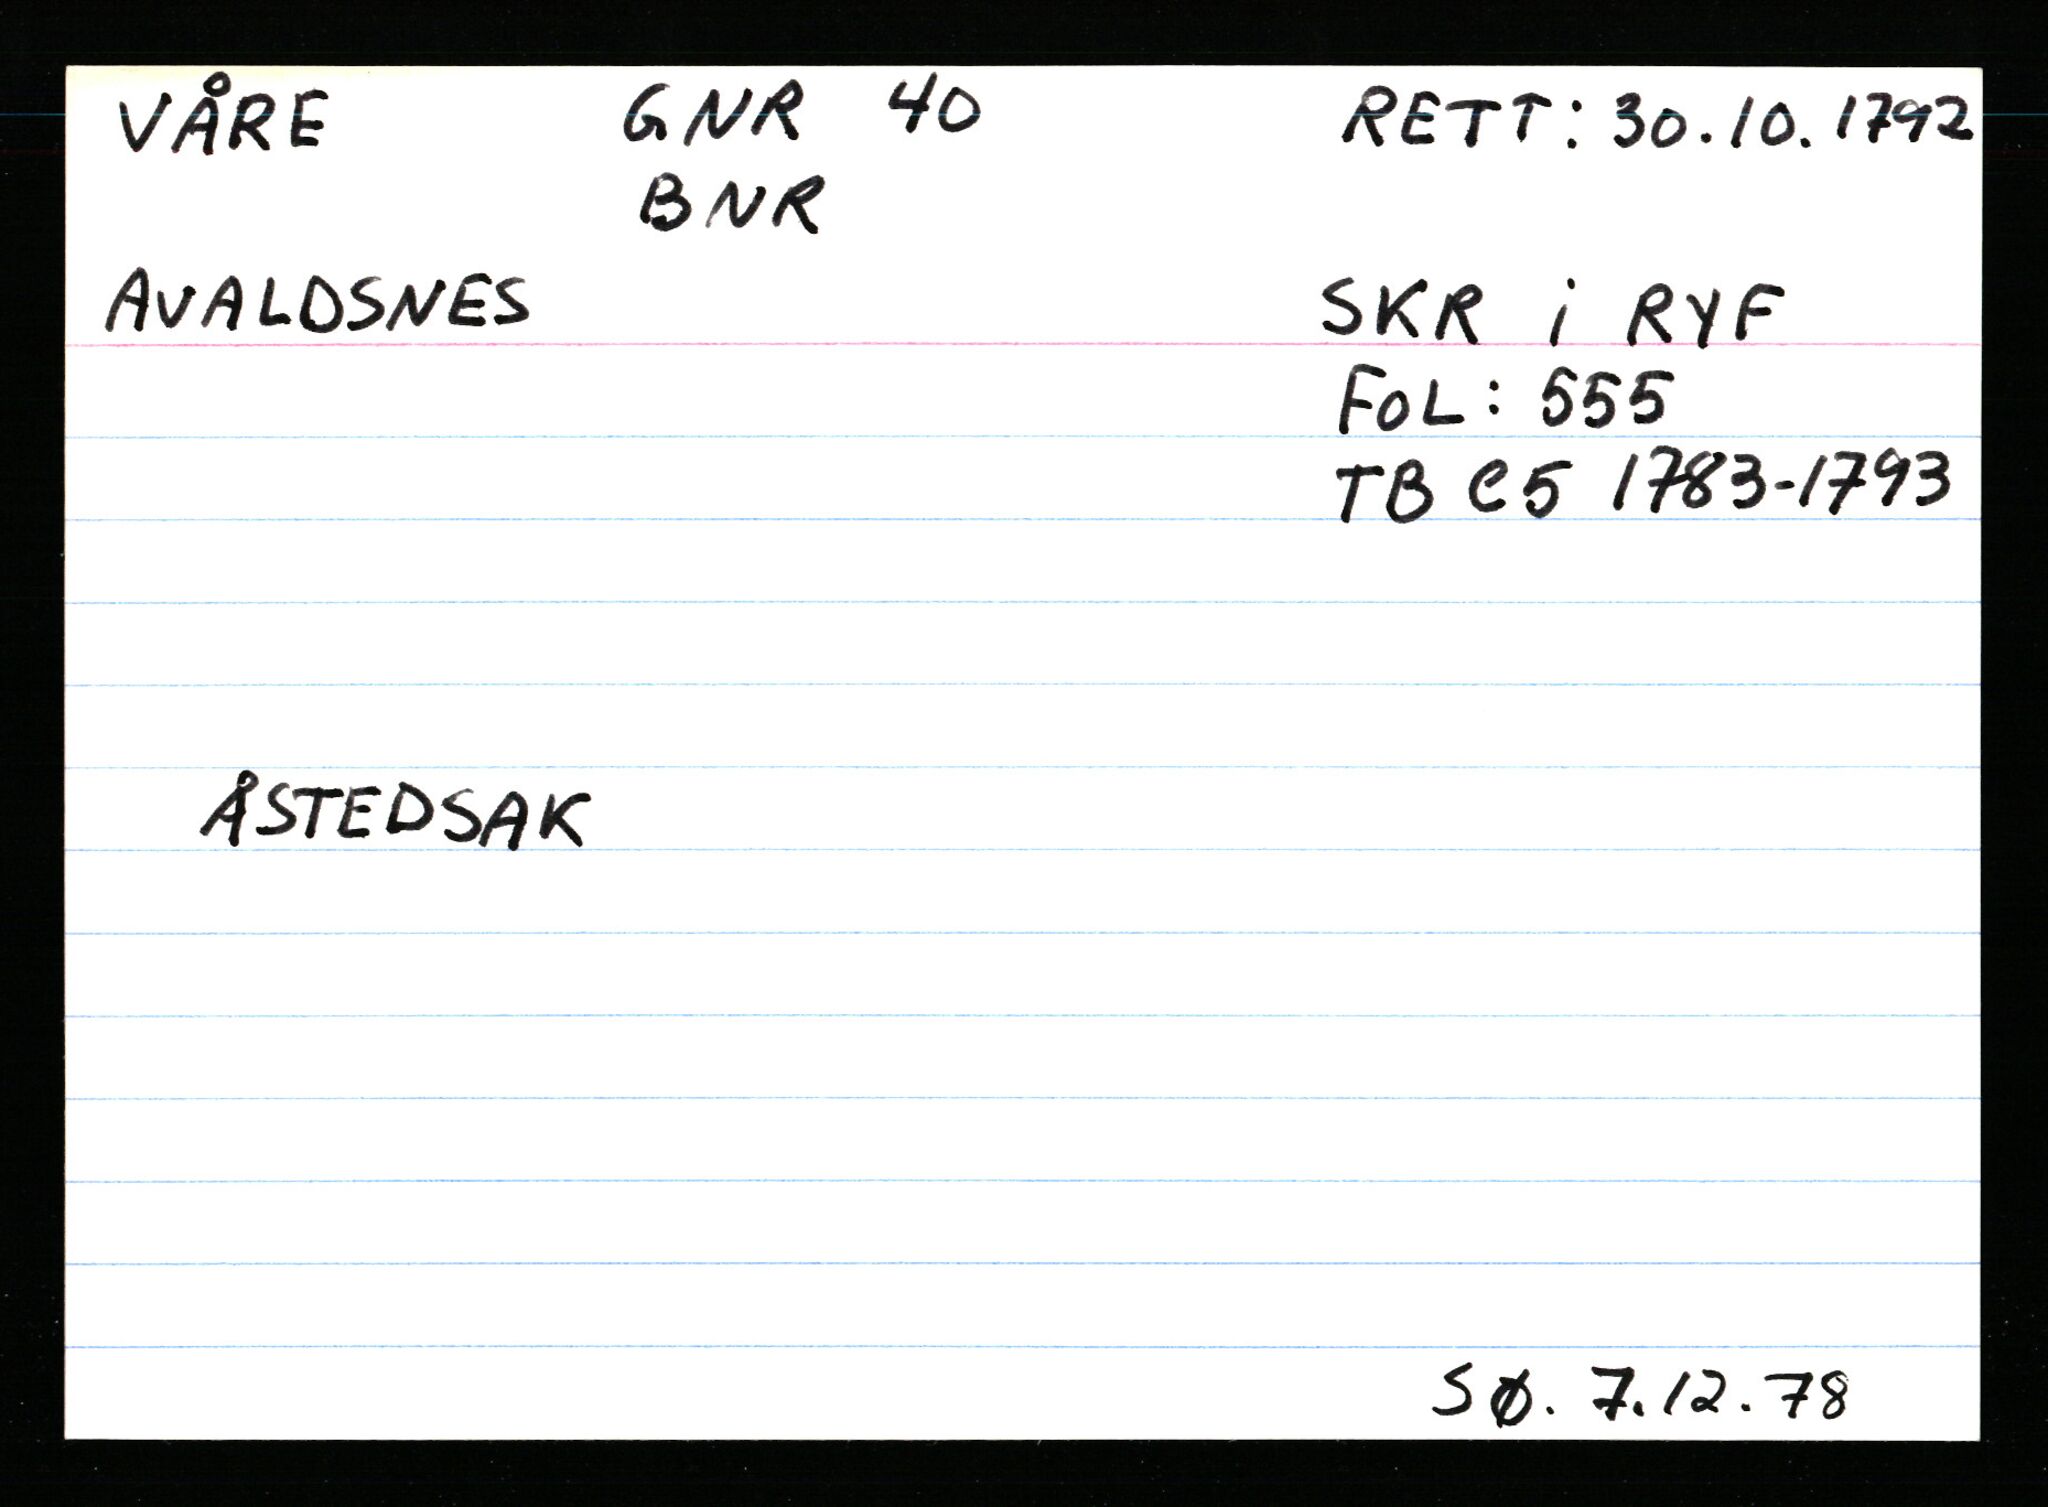 VÅRE GNR 40 RETT: 30.10.1792
BNR
AVALDSNES SKR i RYF
FOL: 555
TB C5 1783-1793
ÅSTEDSAK
SØ. 7.12.78